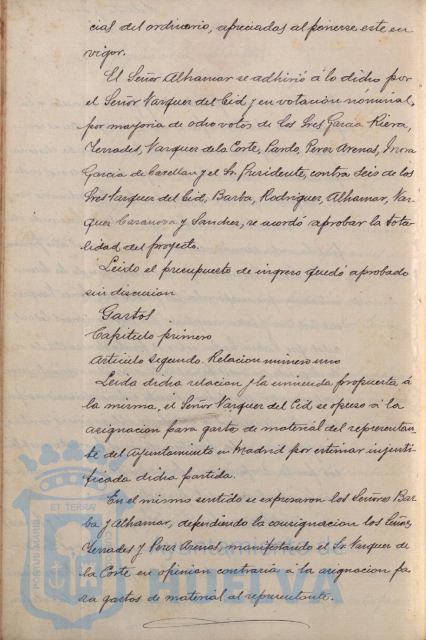 cial del ordinario, apreciadas al ponerse este en
vigor.
El Señor Alhamar se adhirió á lo dicho por
el Señor Vazquez del Cid, y en votación nominal,
por mayoria de ocho votos de los Sres Garcia Riera,
Terrades, Vazquez de la Corte, Pardo, Perez Arenas, Mora
Garcia de Castellan y el Sr. Presidente, contra seis de los
Sres Vazquez del Cid, Barba, Rodriguez, Alhamar, Vaz-
quez Casanova y Sanchez, se acordó aprobar la tota-
lidad del proyecto.
Leido el presupuesto de ingreso quedó aprobado
sin discusion
Gastos
Capitulo primero
Articulo segundo. Relacion número uno
Leida dicha relacion y la enmienda propuesta á
la misma, el Señor Vazquez del Cid se opuso á la
asignacion para gastos de material del representan-
te del Ayuntamiento en Madrid por estimar injusti-
ficada dicha partida.
En el mismo sentido se expresaron los Señores Bar-
ba y Alhamar, defendiendo la consignacion los Señores
Terrades y Perez Arenas, manifestando el Sr Vazquez de
la Corte en opinion contraria á la asignacion pa-
ra gastos de material al representante.
PORTUS MARIS
ET TERRA
HUELVA